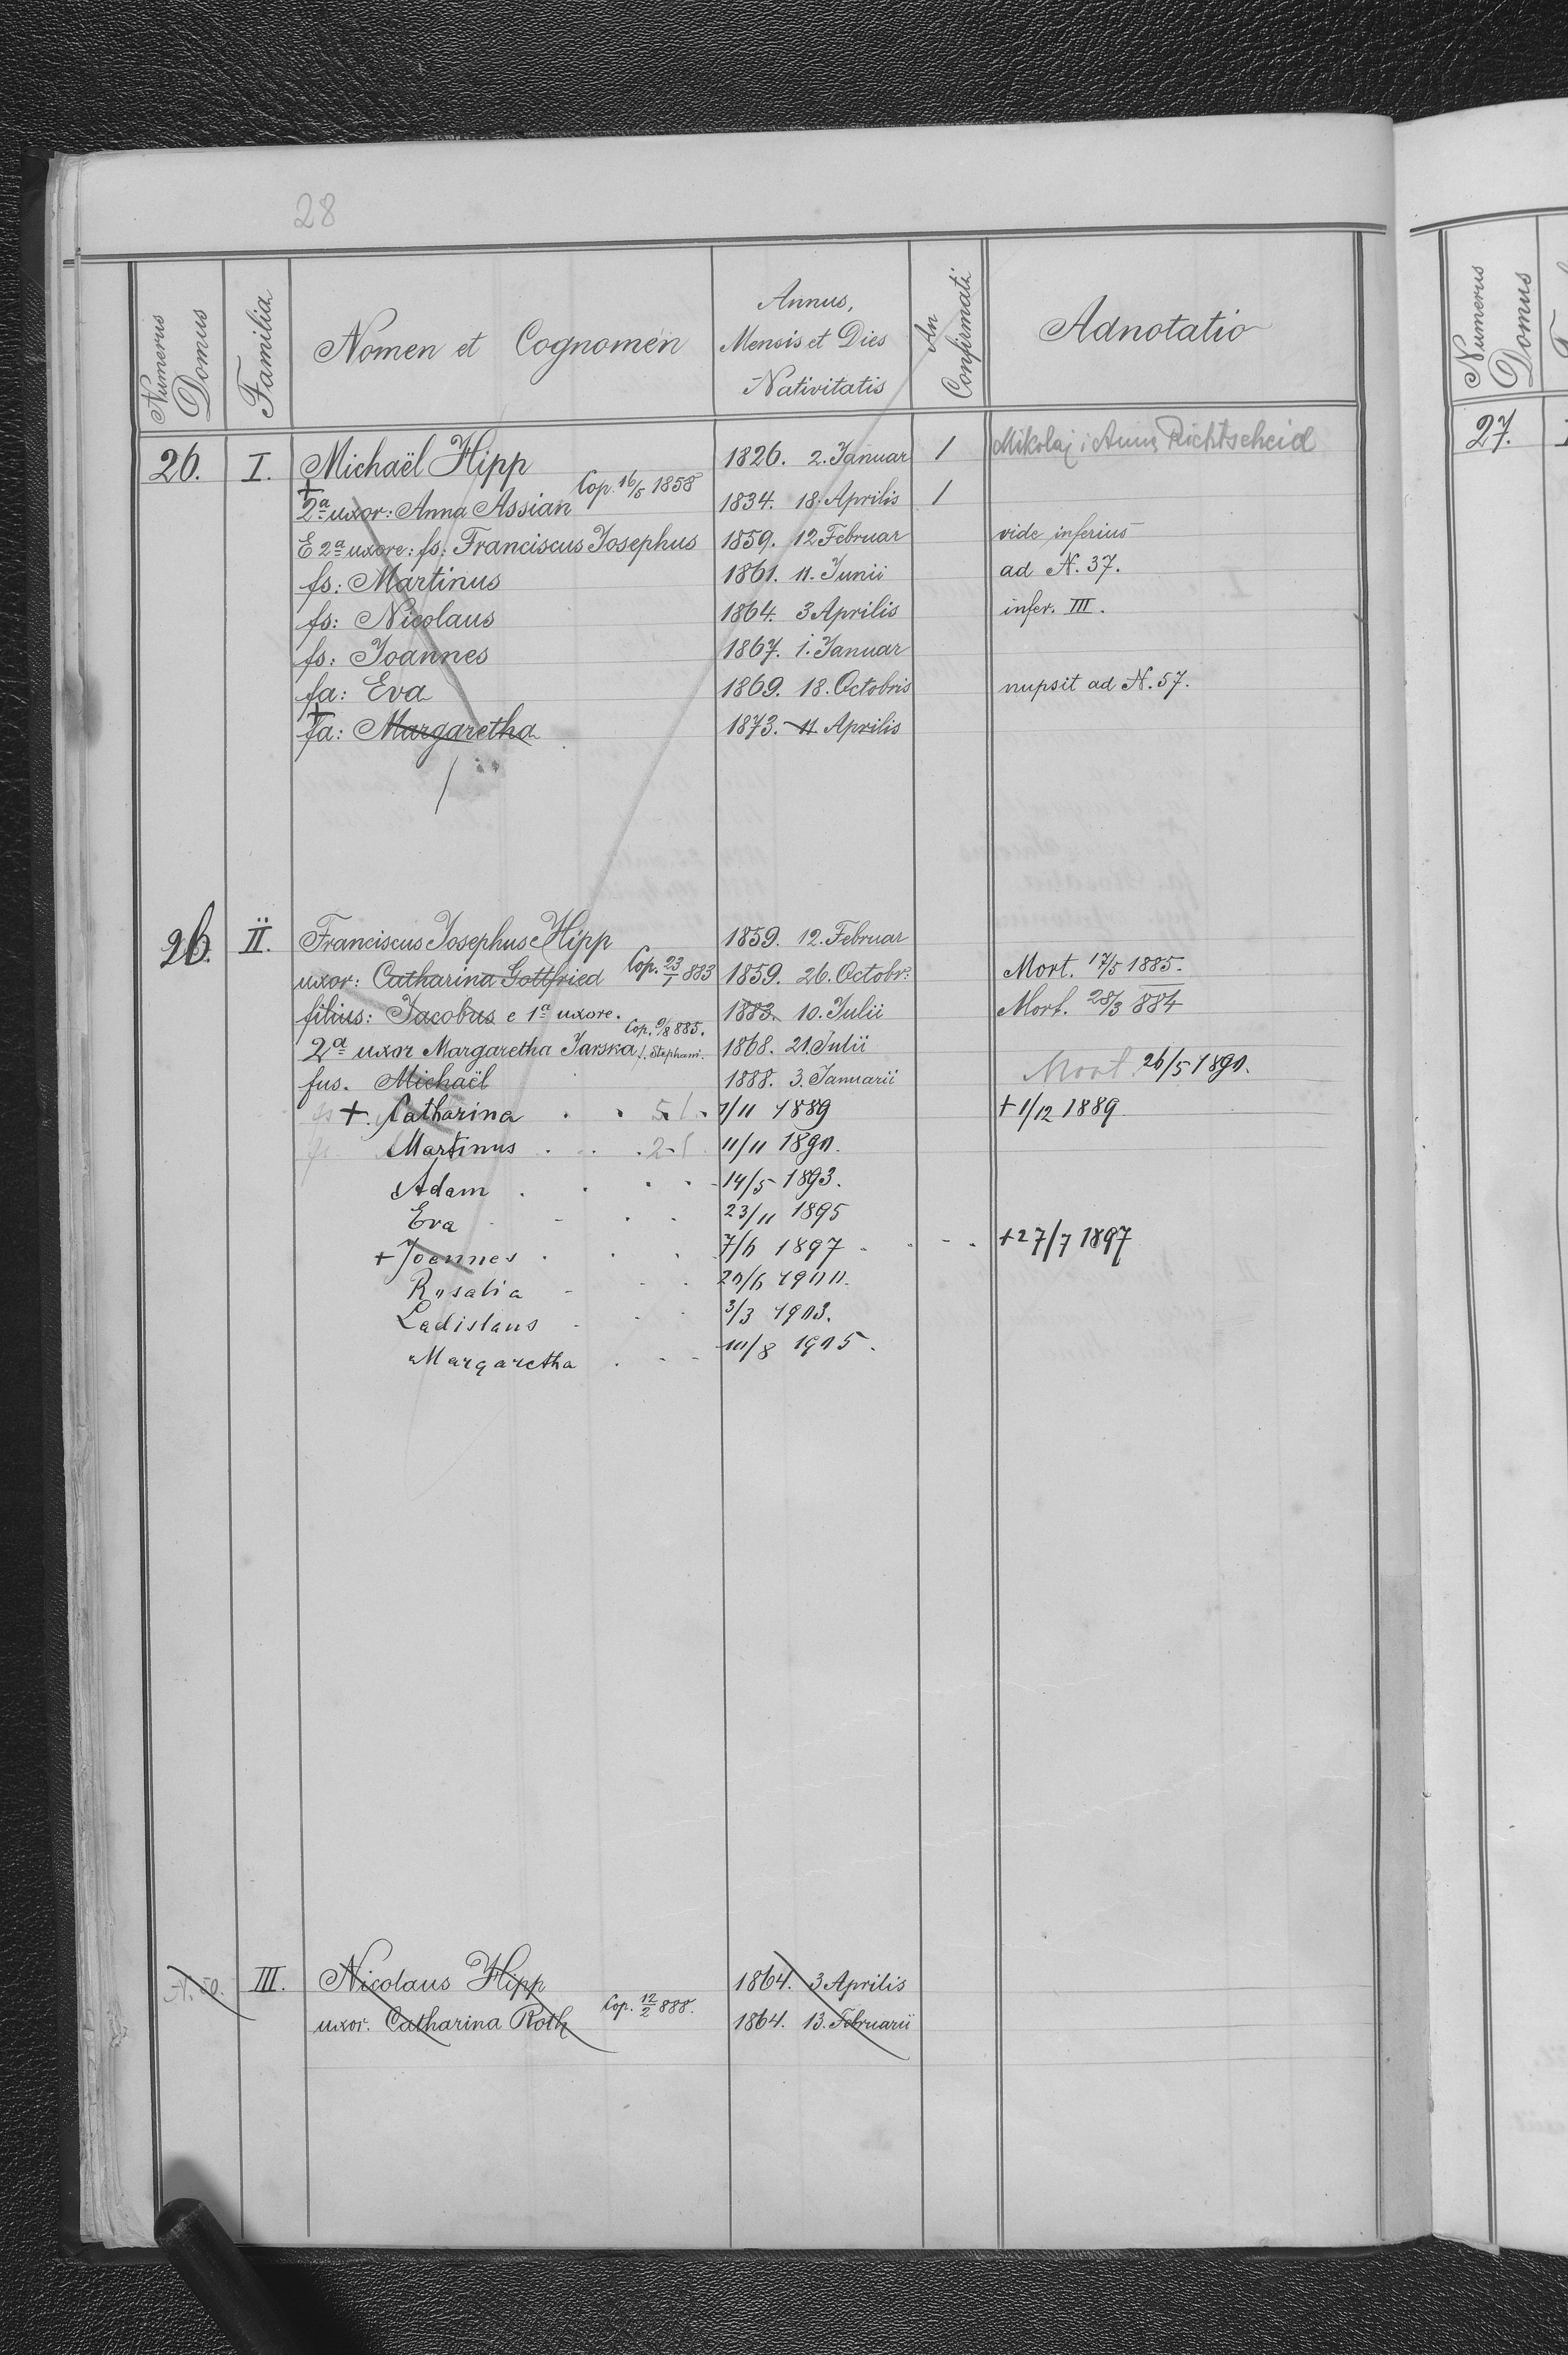 28
Numerus Domus | Familia | Nomen et Cognomen | Annus, Mensis et Dies Nativitatis | An Confirmati | Adnotatio
26. I. Michaël Hipp 1826. 2. Januar / Mikolaj i Anna Richtscheid
+ 2a uxor: Anna Assian Cop. 16/5 1858 1834. 18. Aprilis /
E 2a uxore: fs: Franciscus Josephus 1859. 12 Februar vide inferius
fs: Martinus 1861. 11. Junii ad N. 37.
fs: Nicolaus 1864. 3 Aprilis infer. III.
fs: Joannes 1867. 1. Januar
fa: Eva 1869. 18. Octobris nupsit ad N. 57.
+ fa: Margaretha 1873. 11 Aprilis
26. II. Franciscus Josephus Hipp 1859. 12. Februar
uxor: Catharina Gottfried Cop. 23/1 883 1859. 26. Octobr: Mort. 17/5 1885.
filius: Jacobus e 1a uxore. 1883. 10. Julii Mort. 28/3 884
2a uxor Margaretha Jarska f. Stephani. Cop. 9/8 885. 1868. 21. Julii
fus. Michaël 1888. 3. Januarii Mort 26/5 1890.
+ Catharina 1/11 1889 + 1/12 1889
Martinus 11/11 1890.
Adam 14/5 1893.
Eva 23/11 1895
+ Joannes 7/6 1897 + 27/7 1897
Rosalia 20/6 1900.
Ladislaus 3/3 1903.
Margaretha 10/8 1905.
III. Nicolaus Hipp 1864. 3 Aprilis
uxor. Catharina Roth Cop. 12/2 888. 1864. 13. Februarii
Numerus Domus
27.